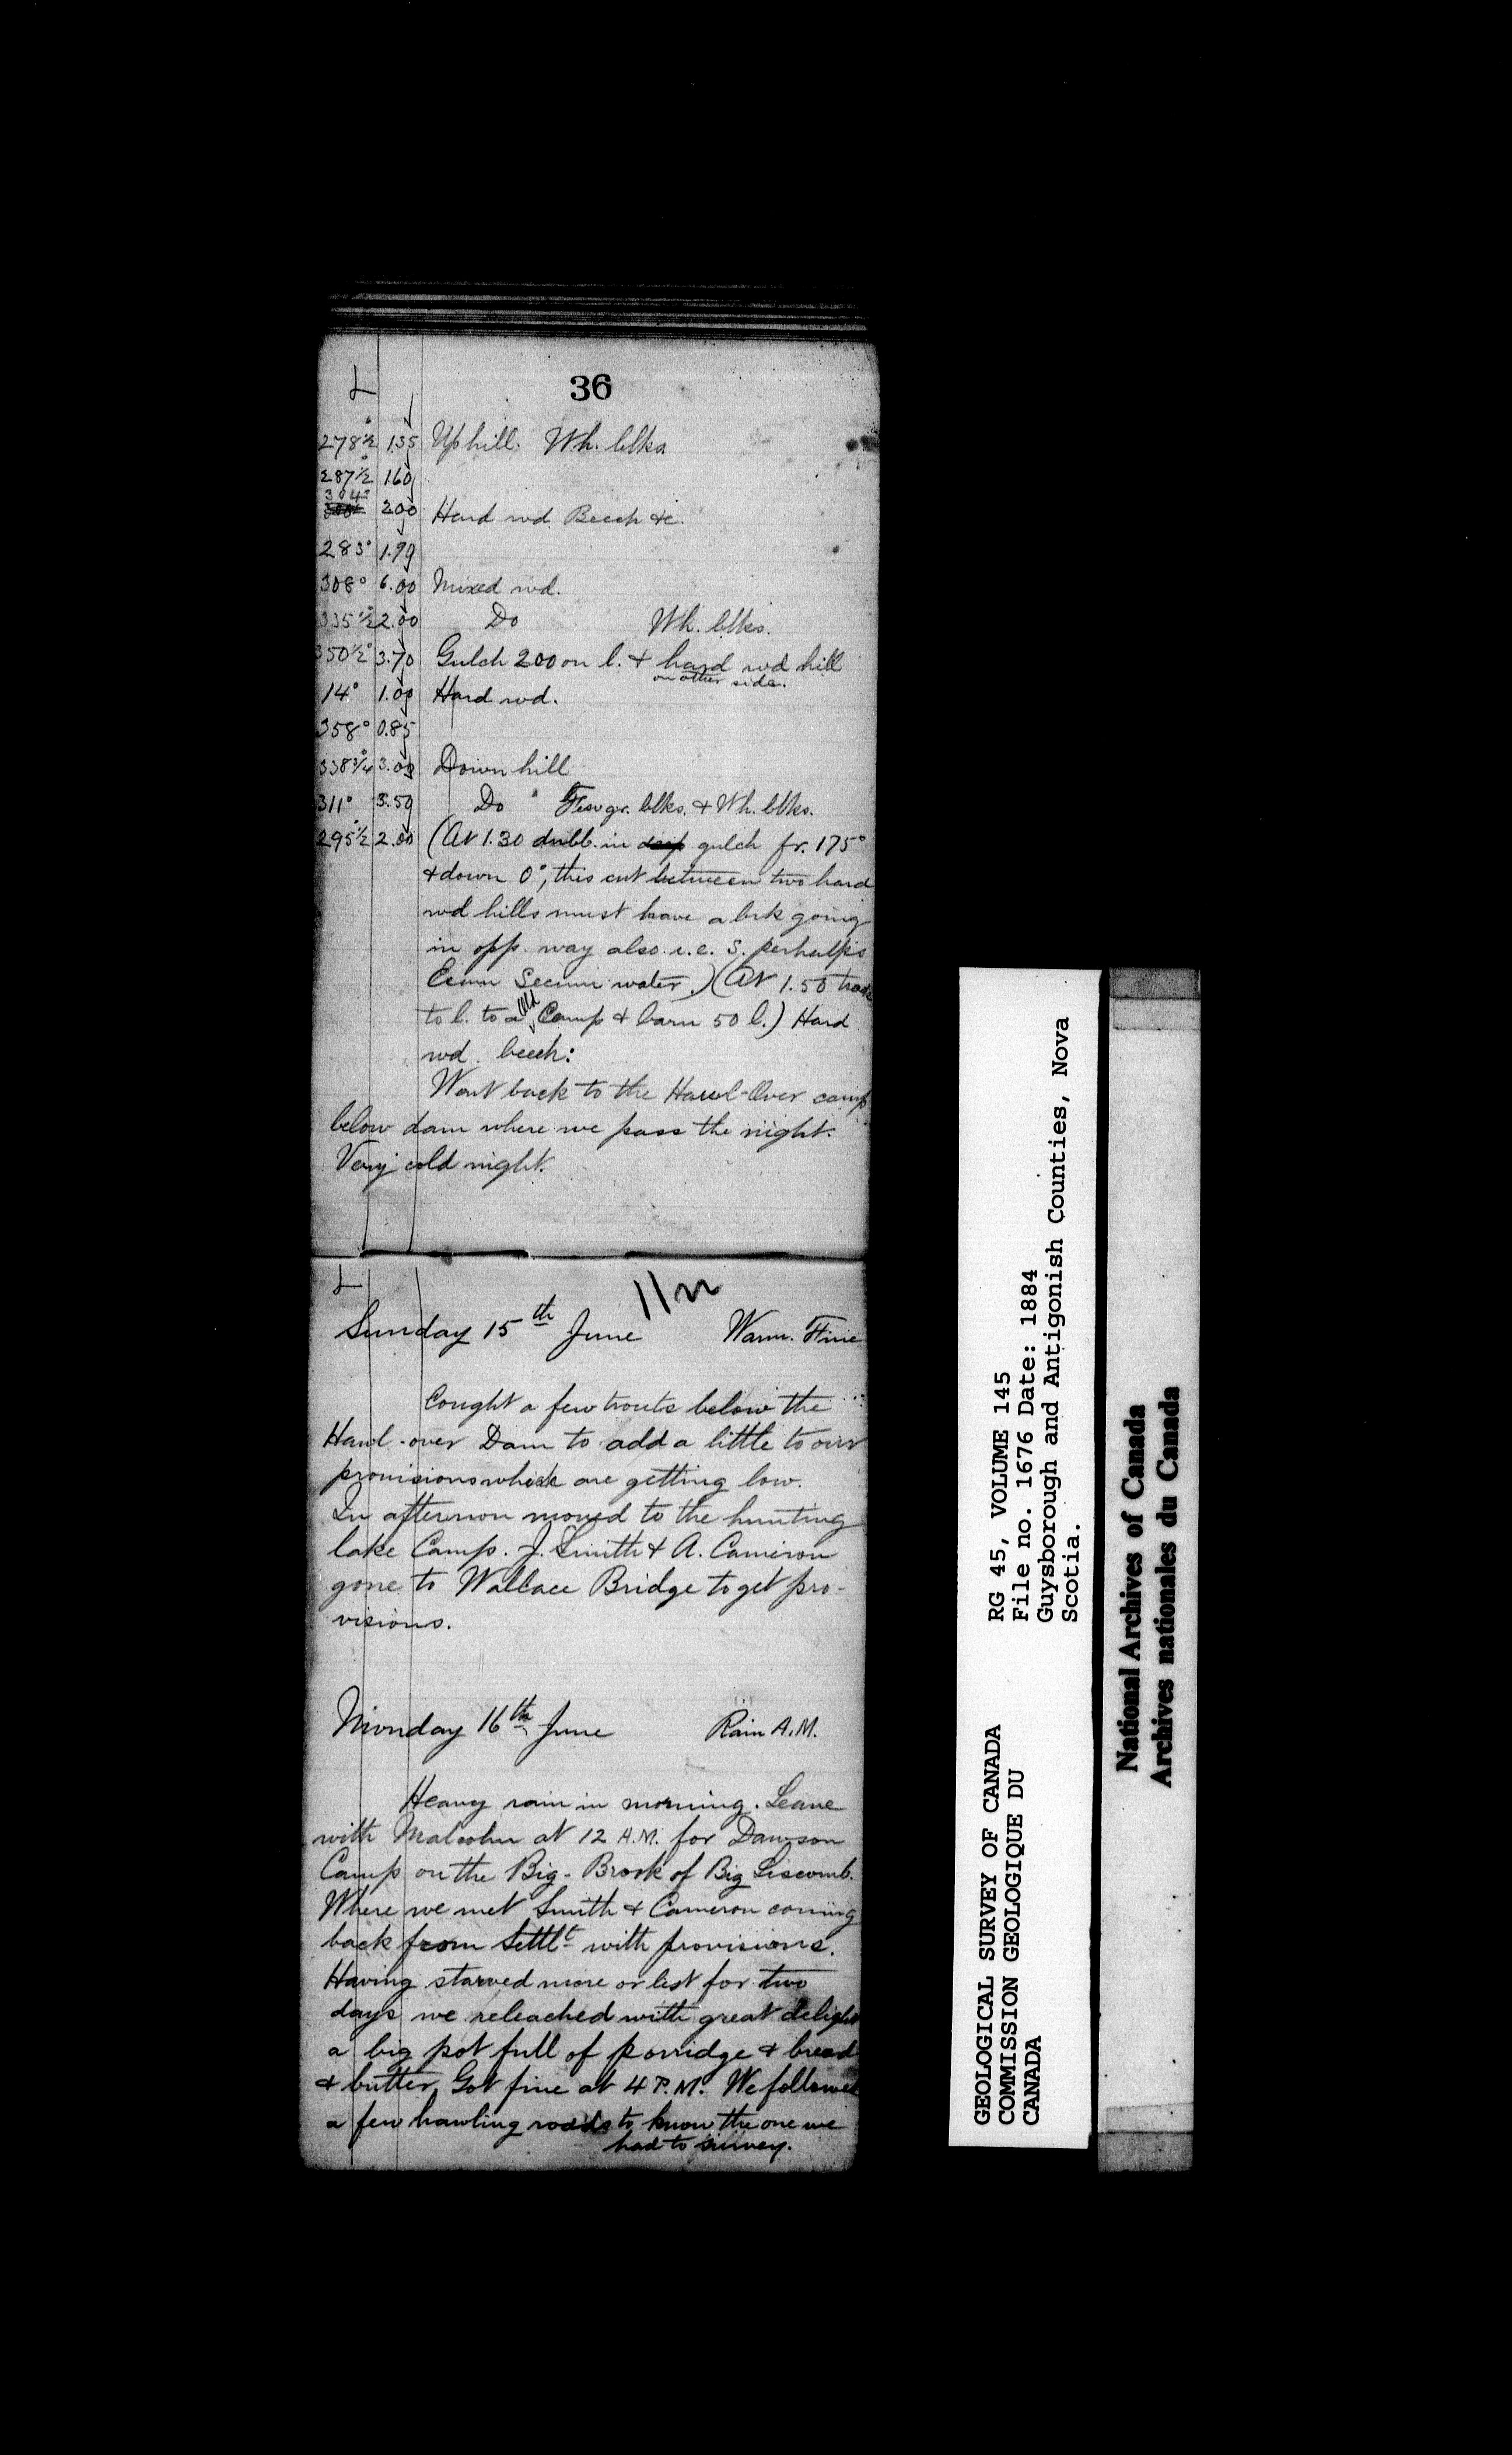 36
L
278½° 135 Up hill. Wh. blks
287½° 160
304° 200 Hard wd. Beech &c.
283° 1.79
308° 6.00 Mixed wd.
335½° 2.00 Do Wh. blks.
350½° 3.70 Gulch 200 on l. & hard wd hill
on other side.
14° 1.00 Hard wd.
358° 0.85
338¾° 3.00 Down hill
311° 3.50 Do " Few gr. blks. & Wh. blks.
295½° 2.00 (At 1.30 in deep gulch fr. 175°
& down 0°, this cut between two hard
wd hills must have a brk going
in opp. way also i.e. S. perhalps
Ecum Secum water.) (At 1.50
to l. to a old Camp & barn 50 l.) Hard
wd. beech:
Went back to the Hawl-Over camp
below dam where we pass the night.
Very cold night.
L
Sunday 15th June Warm. Fine
Cought a few trouts below the
Hawl-over Dam to add a little to our
provisions which are getting low.
In afternoon moved to the hunting
lake Camp. J. Smith & A. Cameron
gone to Wallace Bridge to get pro-
visions.
Monday 16th June Rain A.M.
Heavy rain in morning. Leave
with Malcolm at 12 A.M. for Dawson
Camp on the Big-Brook of Big Liscomb.
Where we met Smith & Cameron coming
back from Settlt with provisions.
Having starved more or lest for two
days we releached with great delight
a big pot full of porridge & bread
& butter. Got fine at 4 P.M. We followed
a few hawling roads to know the one we
had to survey.
GEOLOGICAL SURVEY OF CANADA
COMMISSION GEOLOGIQUE DU
CANADA
RG 45, VOLUME 145
File no. 1676 Date: 1884
Guysborough and Antigonish Counties, Nova
Scotia.
National Archives of Canada
Archives nationales du Canada